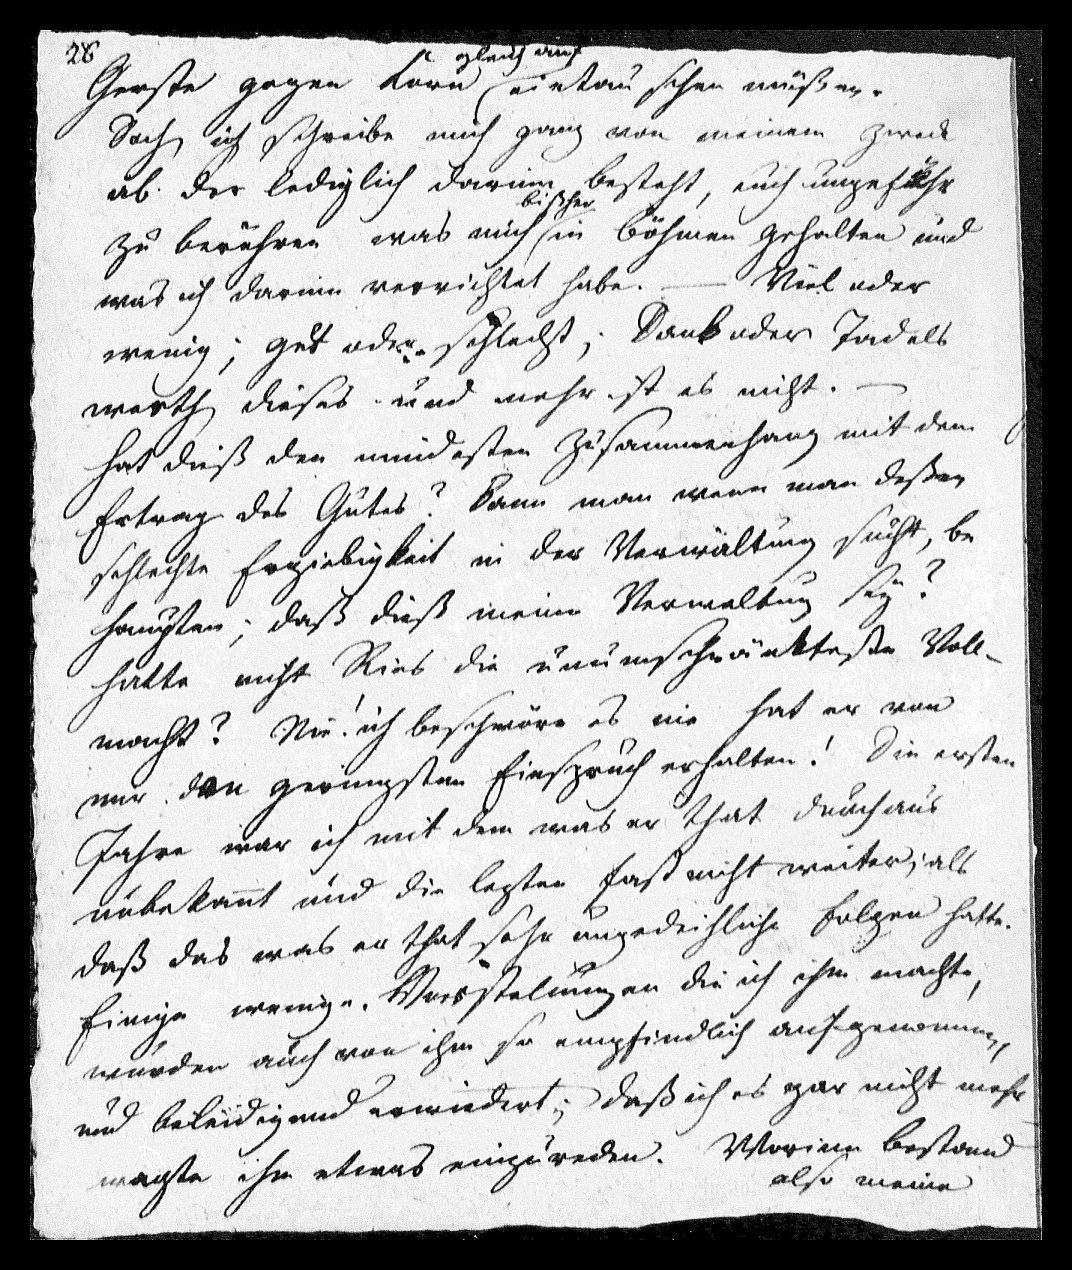 28
Gerste gegen Korn gleich auf eintauschen müßen.
Doch ich schreibe mich ganz von meinem Zweck
ab. der lediglich darinn besteht, euch ungefähr
zu berühren was mich bißher in Böhmen gehalten und
was ich darinn verrichtet habe. — Viel oder
wenig; gut oder schlecht; Dank oder Tadels
werth dieses und mehr ist es nicht. —
hat dieß den mindesten Zusammenhang mit dem
Ertrag des Gutes? Kann man wenn man deßen
schlechte Ergiebigkeit in der Verwaltung sucht, be
haupten; daß dieß meine Verwaltung sey?
hatte nicht Ries die uneinschränkteste Voll-
macht? Nie! ich beschwöre es nie hat er von
mir den geringsten Einspruch erhalten! Die ersten
Jahre war ich mit dem was er that durchaus
unbekannt und die lezten fast nicht weiter; als
daß das was er that sehr ungedeihliche Folgen hatte.
Einige wenige Vorstellungen die ich ihm machte,
wurden auch von ihm so empfindlich aufgenommen,
und beleidigend erwiedert; daß ich es gar nicht mehr
wagte ihm etwas einzureden. Worinn bestand
also meine